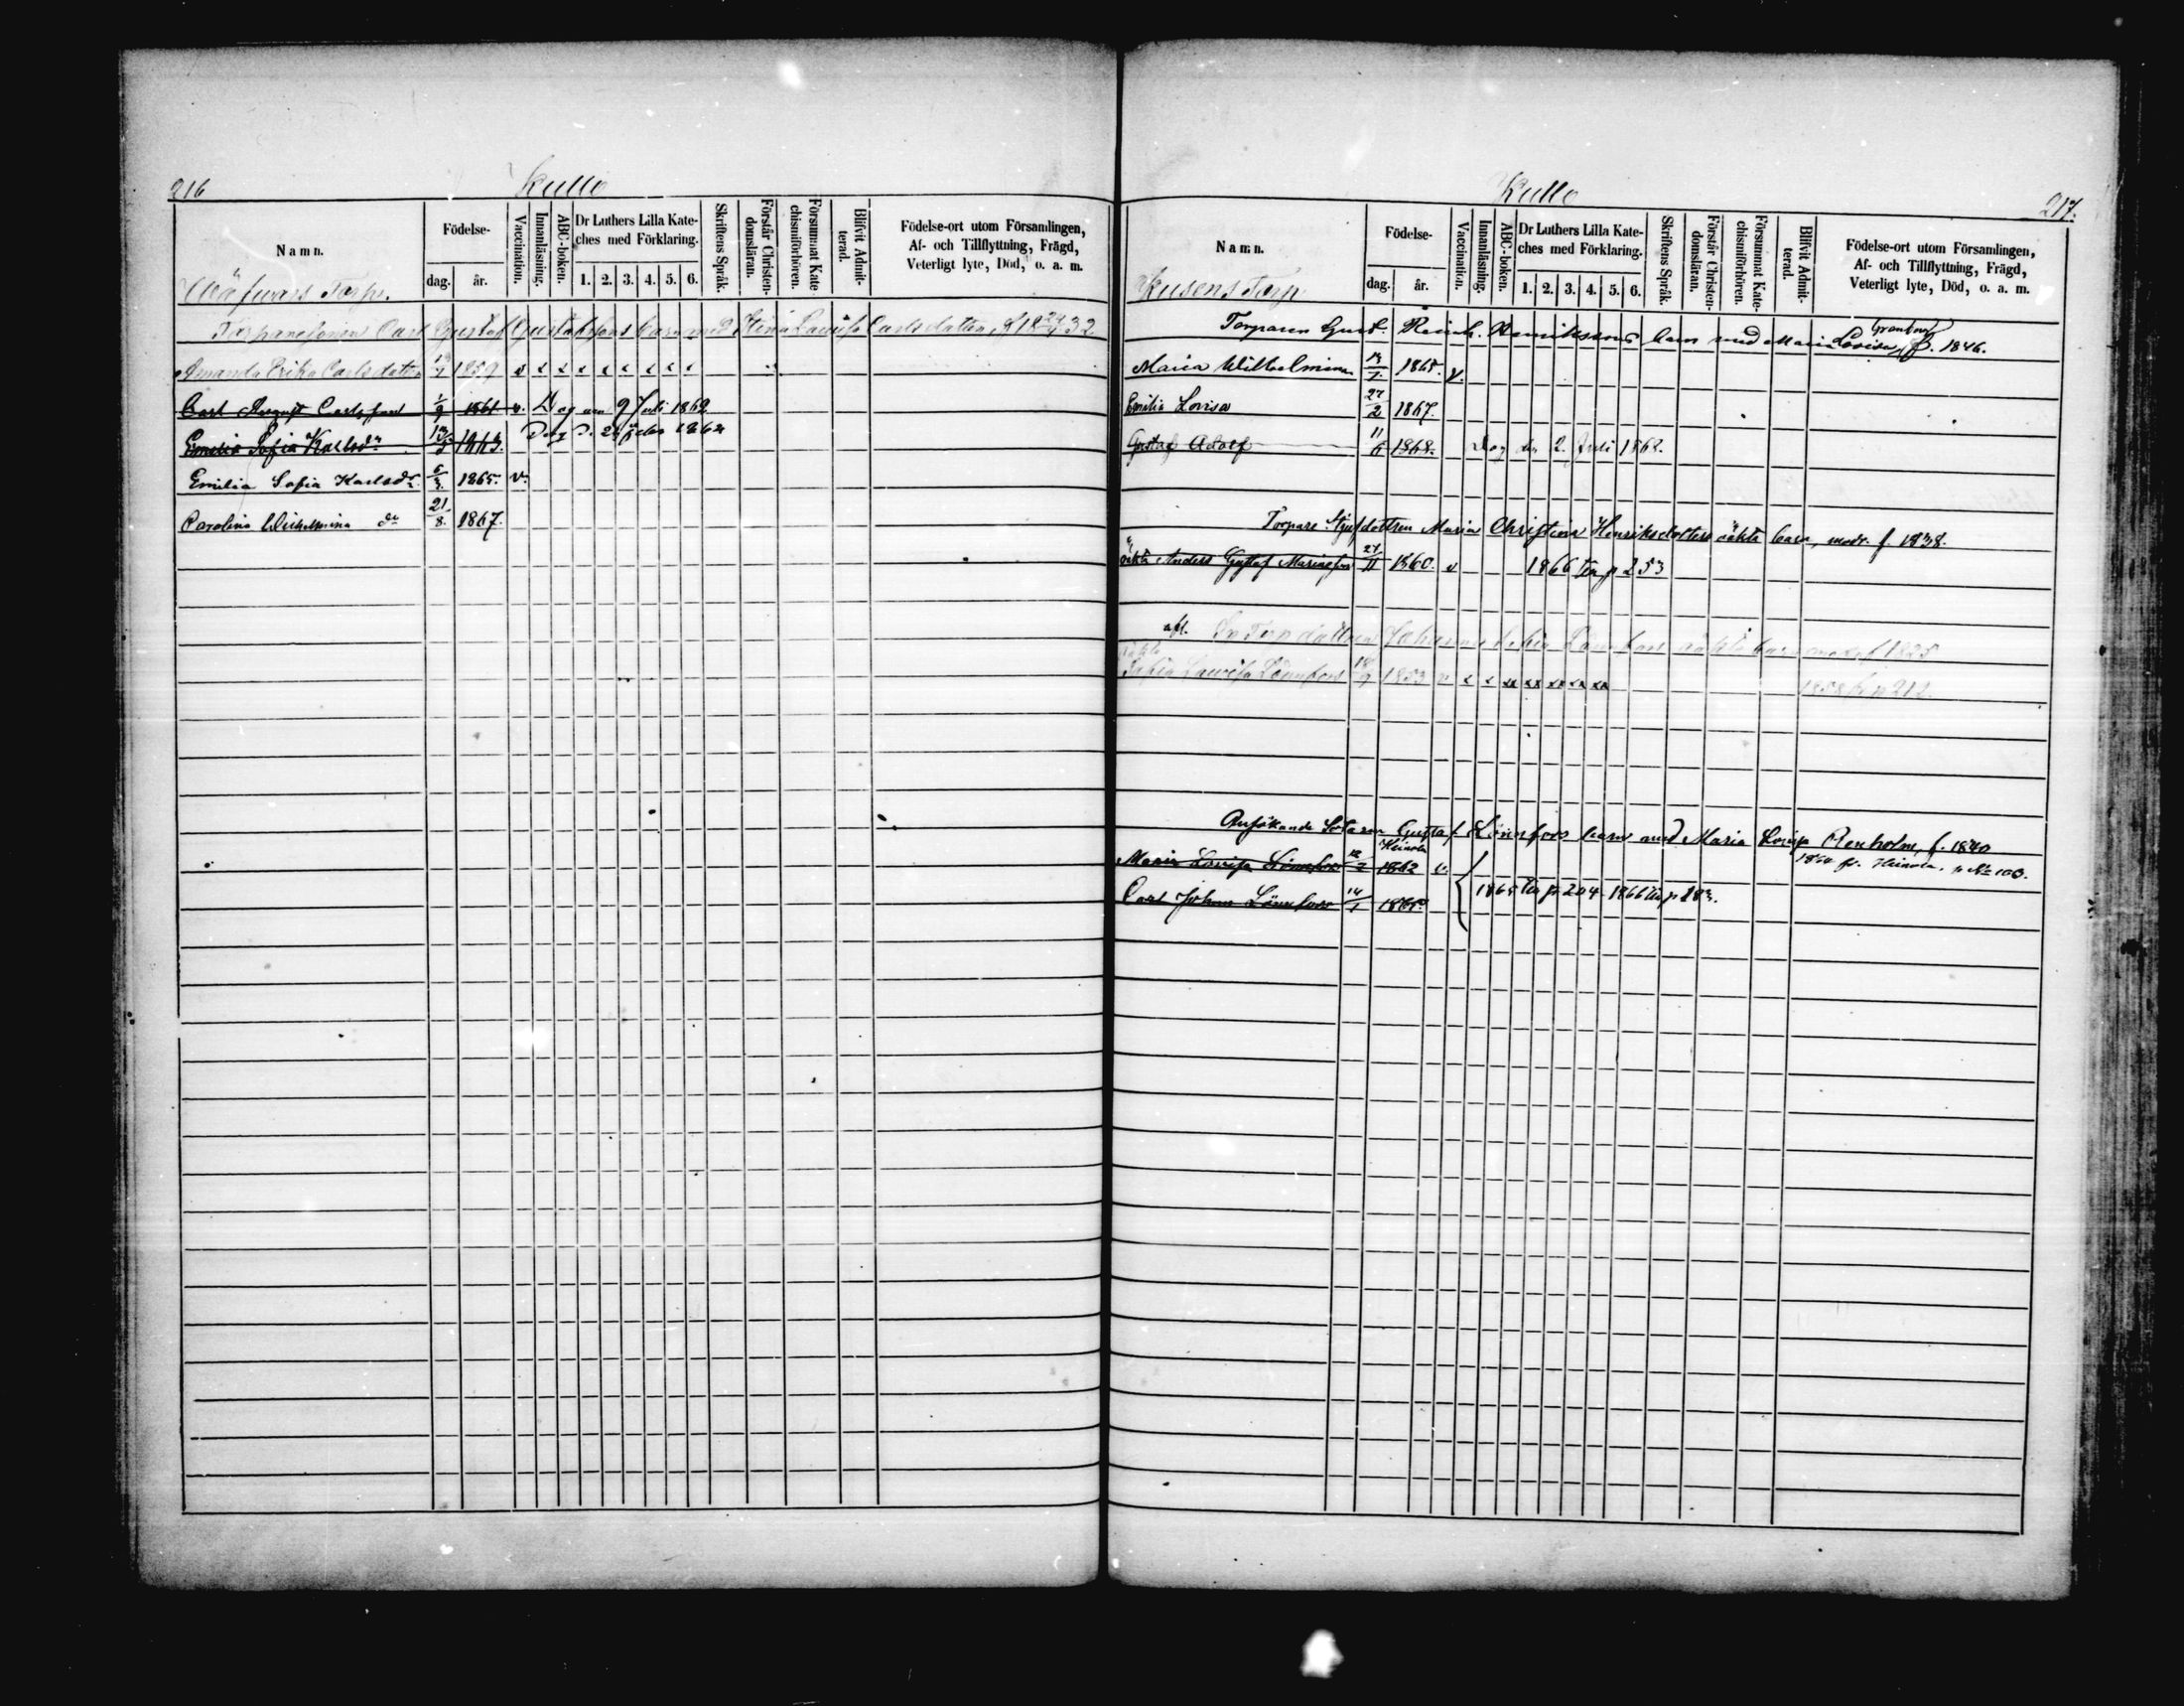 216
Kullo
Namn.
Födelse-
dag.
år.
Vaccination.
Innanläsning.
ABC-boken.
Dr Luthers Lilla Kate-
ches med Förklaring.
1. 2. 3. 4. 5. 6.
Skriftens Språk.
Förstår Christen-
domsläran.
Försummat Kate-
chismiförhören.
Blifvit Admit-
terad.
Födelse-ort utom Församlingen,
Af- och Tillflyttning, Frägd,
Veterligt lyte, Död, o. a. m.
Wäfvars Torp.
Torparesonen Carl Gustaf Gustafssons barn med Stina Lovisa Carlsdotter, f. 18 32
Amanda Erika Carlsdotter 1859 v
Carl August Carlsson 1/9 1861. v. Dog den 9 Juli 1862
Emilia Sofia Karlsdr 1863. Dog d. febr 1864
Emilia Sofia Karlsdr 1865. v.
Carolina Wilhelmina dr 21/8. 1867.
Kullo
217.
Namn.
Födelse-
dag.
år.
Vaccination.
Innanläsning.
ABC-boken.
Dr Luthers Lilla Kate-
ches med Förklaring.
1. 2. 3. 4. 5. 6.
Skriftens Språk.
Förstår Christen-
domsläran.
Försummat Kate-
chismiförhören.
Blifvit Admit-
terad.
Födelse-ort utom Församlingen,
Af- och Tillflyttning, Frägd,
Veterligt lyte, Död, o. a. m.
Torp
Torparen Gust. Reinh. Henrikssons barn med Maria Lovisa Granberg f. 1846.
Maria Wilhelmina 1865. v.
Emilia Lovisa 27/2 1867.
Gustaf Adolf 11/6 1868. Dog den 2. Juli 1868.
Torpare Styfdottren Maria Christina Henriksdotters oäkta barn, modr. f. 1838.
oäkta Anders Gustaf Mariasson 27/11 1860. v 1866 till p 253
afl. Torp dottren Johanna Lönnfors oäkta barn modr f 1825
oäkta
Sofia Lovisa Lönnfors 18/9 1853 v 1858 fr p 212.
Gustaf Lönnfors barn med Maria Lovisa Renholm, f. 1840
Heinola
Maria Lovisa Lönnfors 12/2 1862 v. 1864 fr. Heinola, p No 103.
Carl Johan Lönnfors 14/1 1865. 1865 till p 204 1866 till p 183.